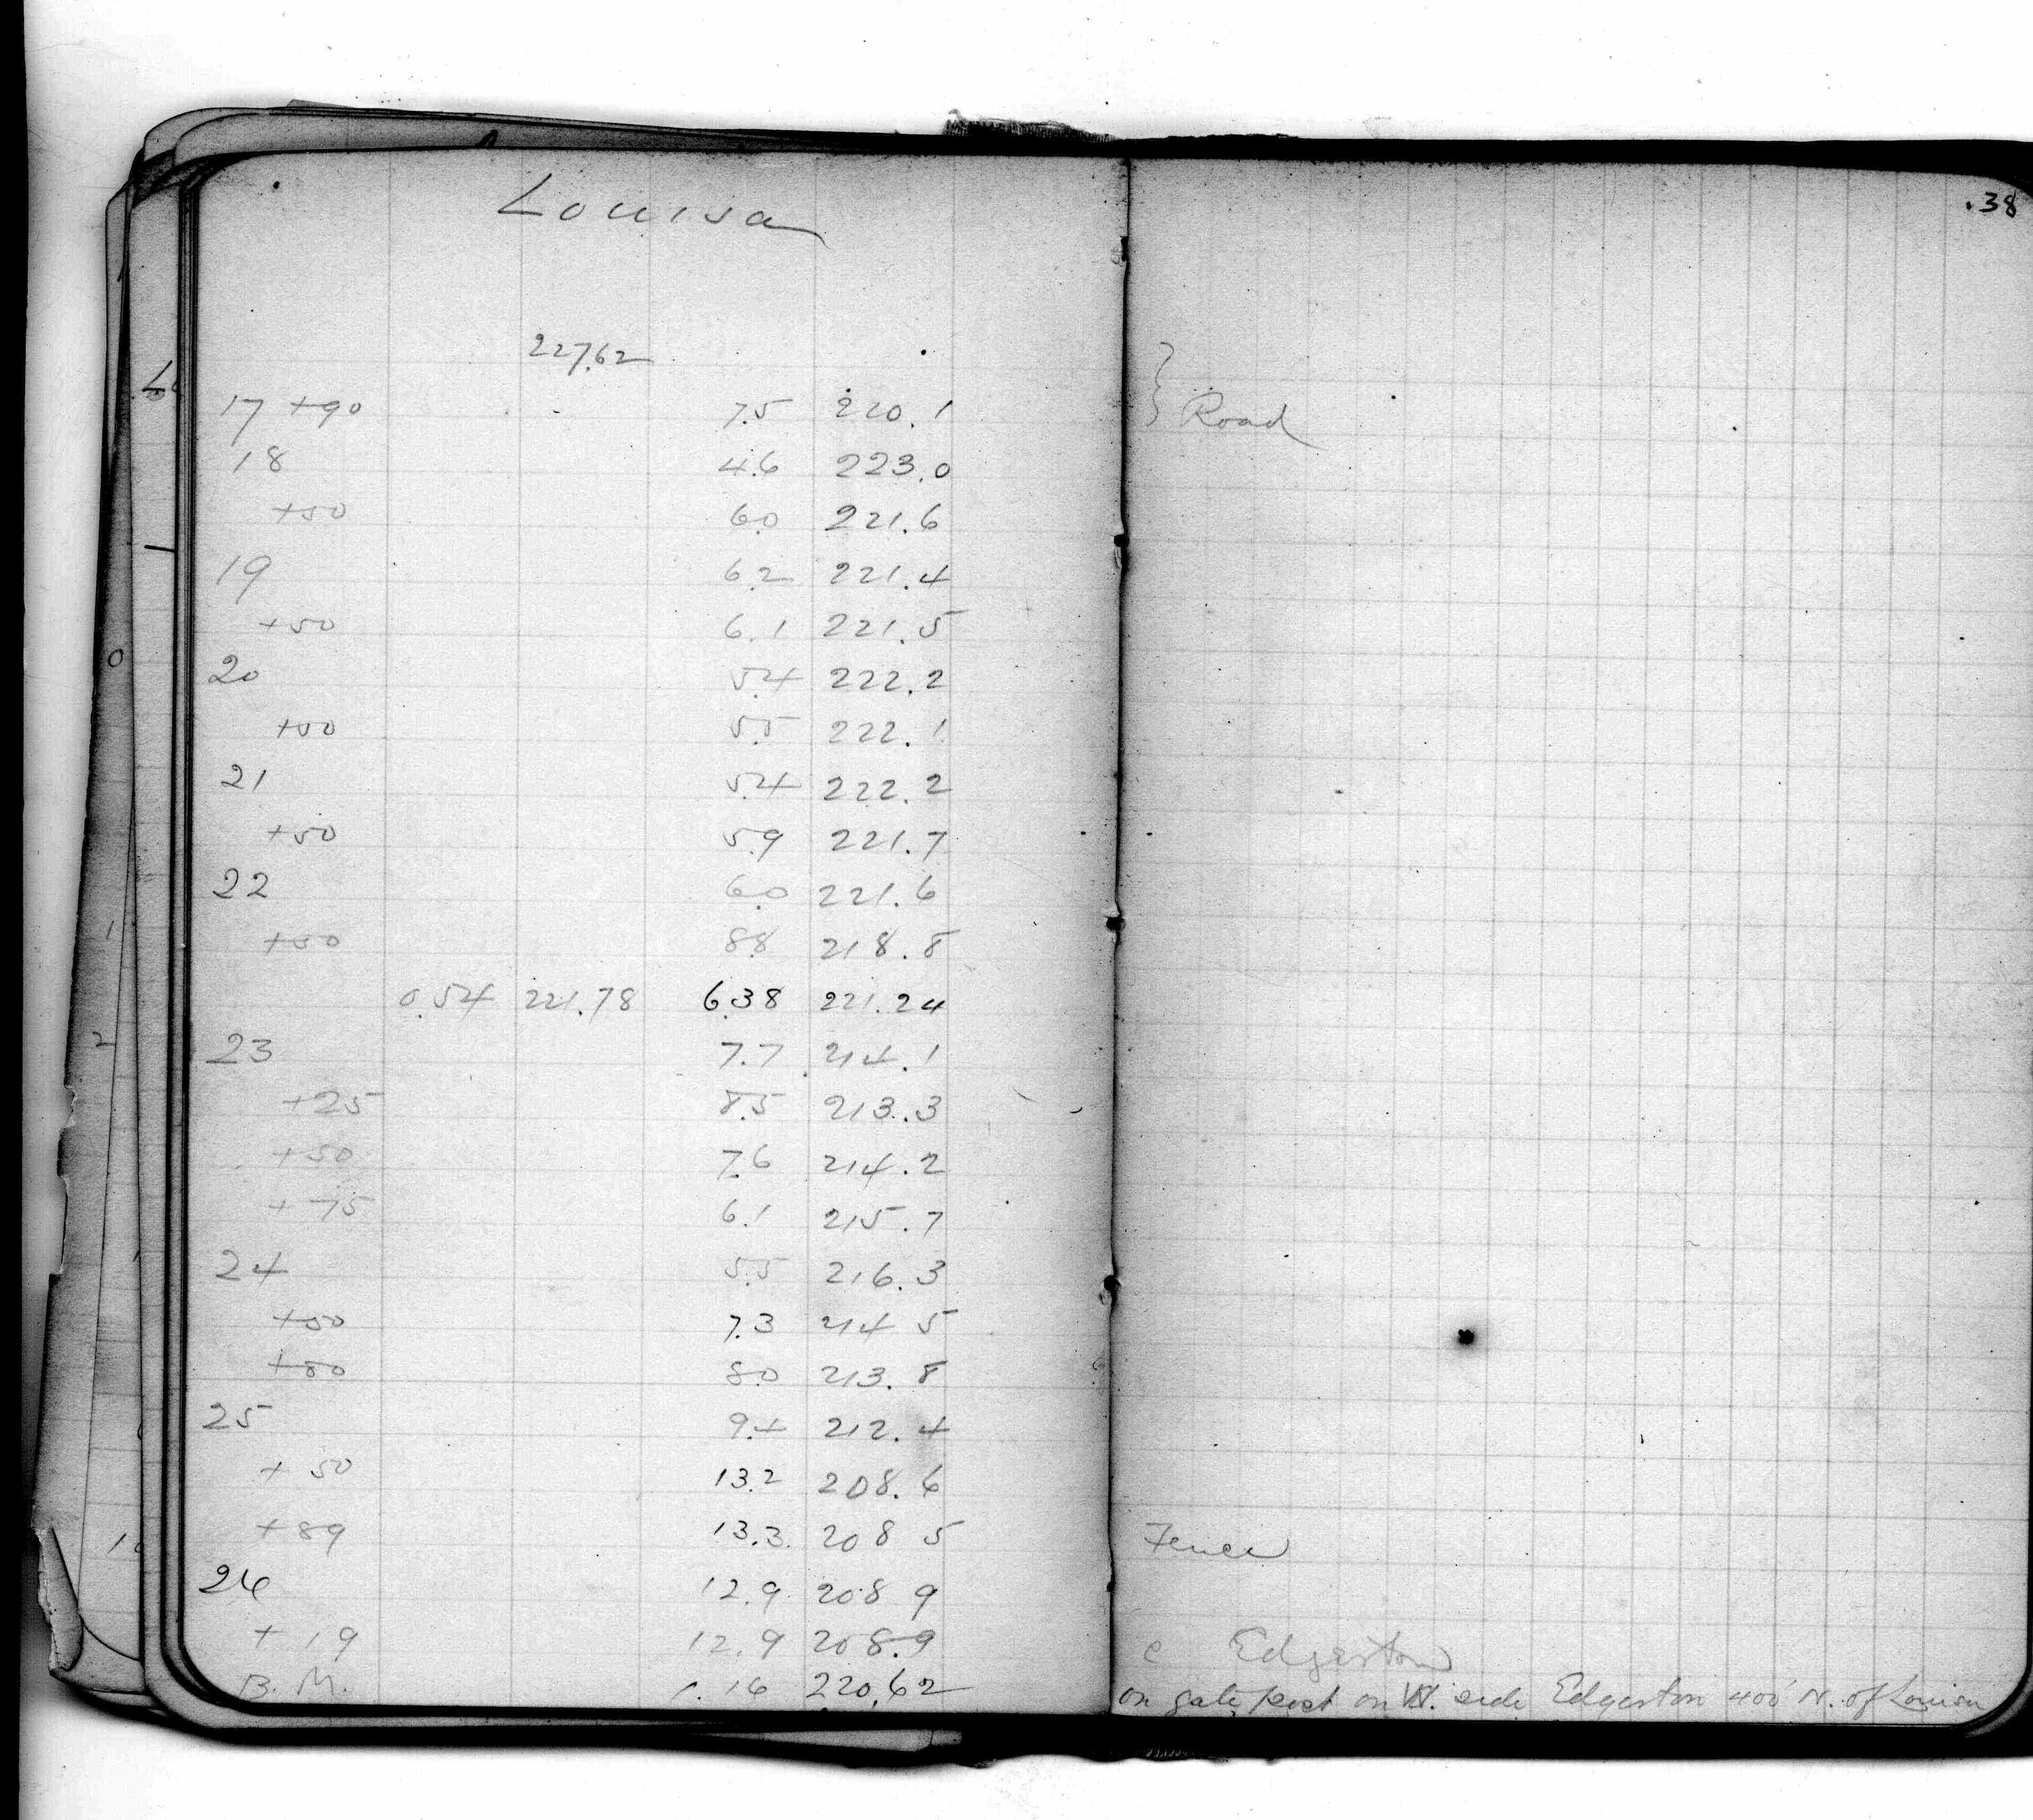 Louisa
.38
227.62
17 +90 7.5 220.1 } Road
18 4.6 223.0
+50 6.0 221.6
19 6.2 221.4
+50 6.1 221.5
20 5.4 222.2
+50 5.5 222.1
21 5.4 222.2
+50 5.9 221.7
22 6.0 221.6
+50 8.8 218.8
0.54 221.78 6.38 221.24
23 7.7 214.1
+25 8.5 213.3
+50 7.6 214.2
+75 6.1 215.7
24 5.5 216.3
+50 7.3 214 5
+80 8.0 213.8
25 9.4 212.4
+50 13.2 208.6
+89 13.3 208 5 Fence
26 12.9 208 9
+19 12.9 208.9 c Edgerton
B.M. 1.16 220.62 on gate post on W. side Edgerton 400' N. of Louisa